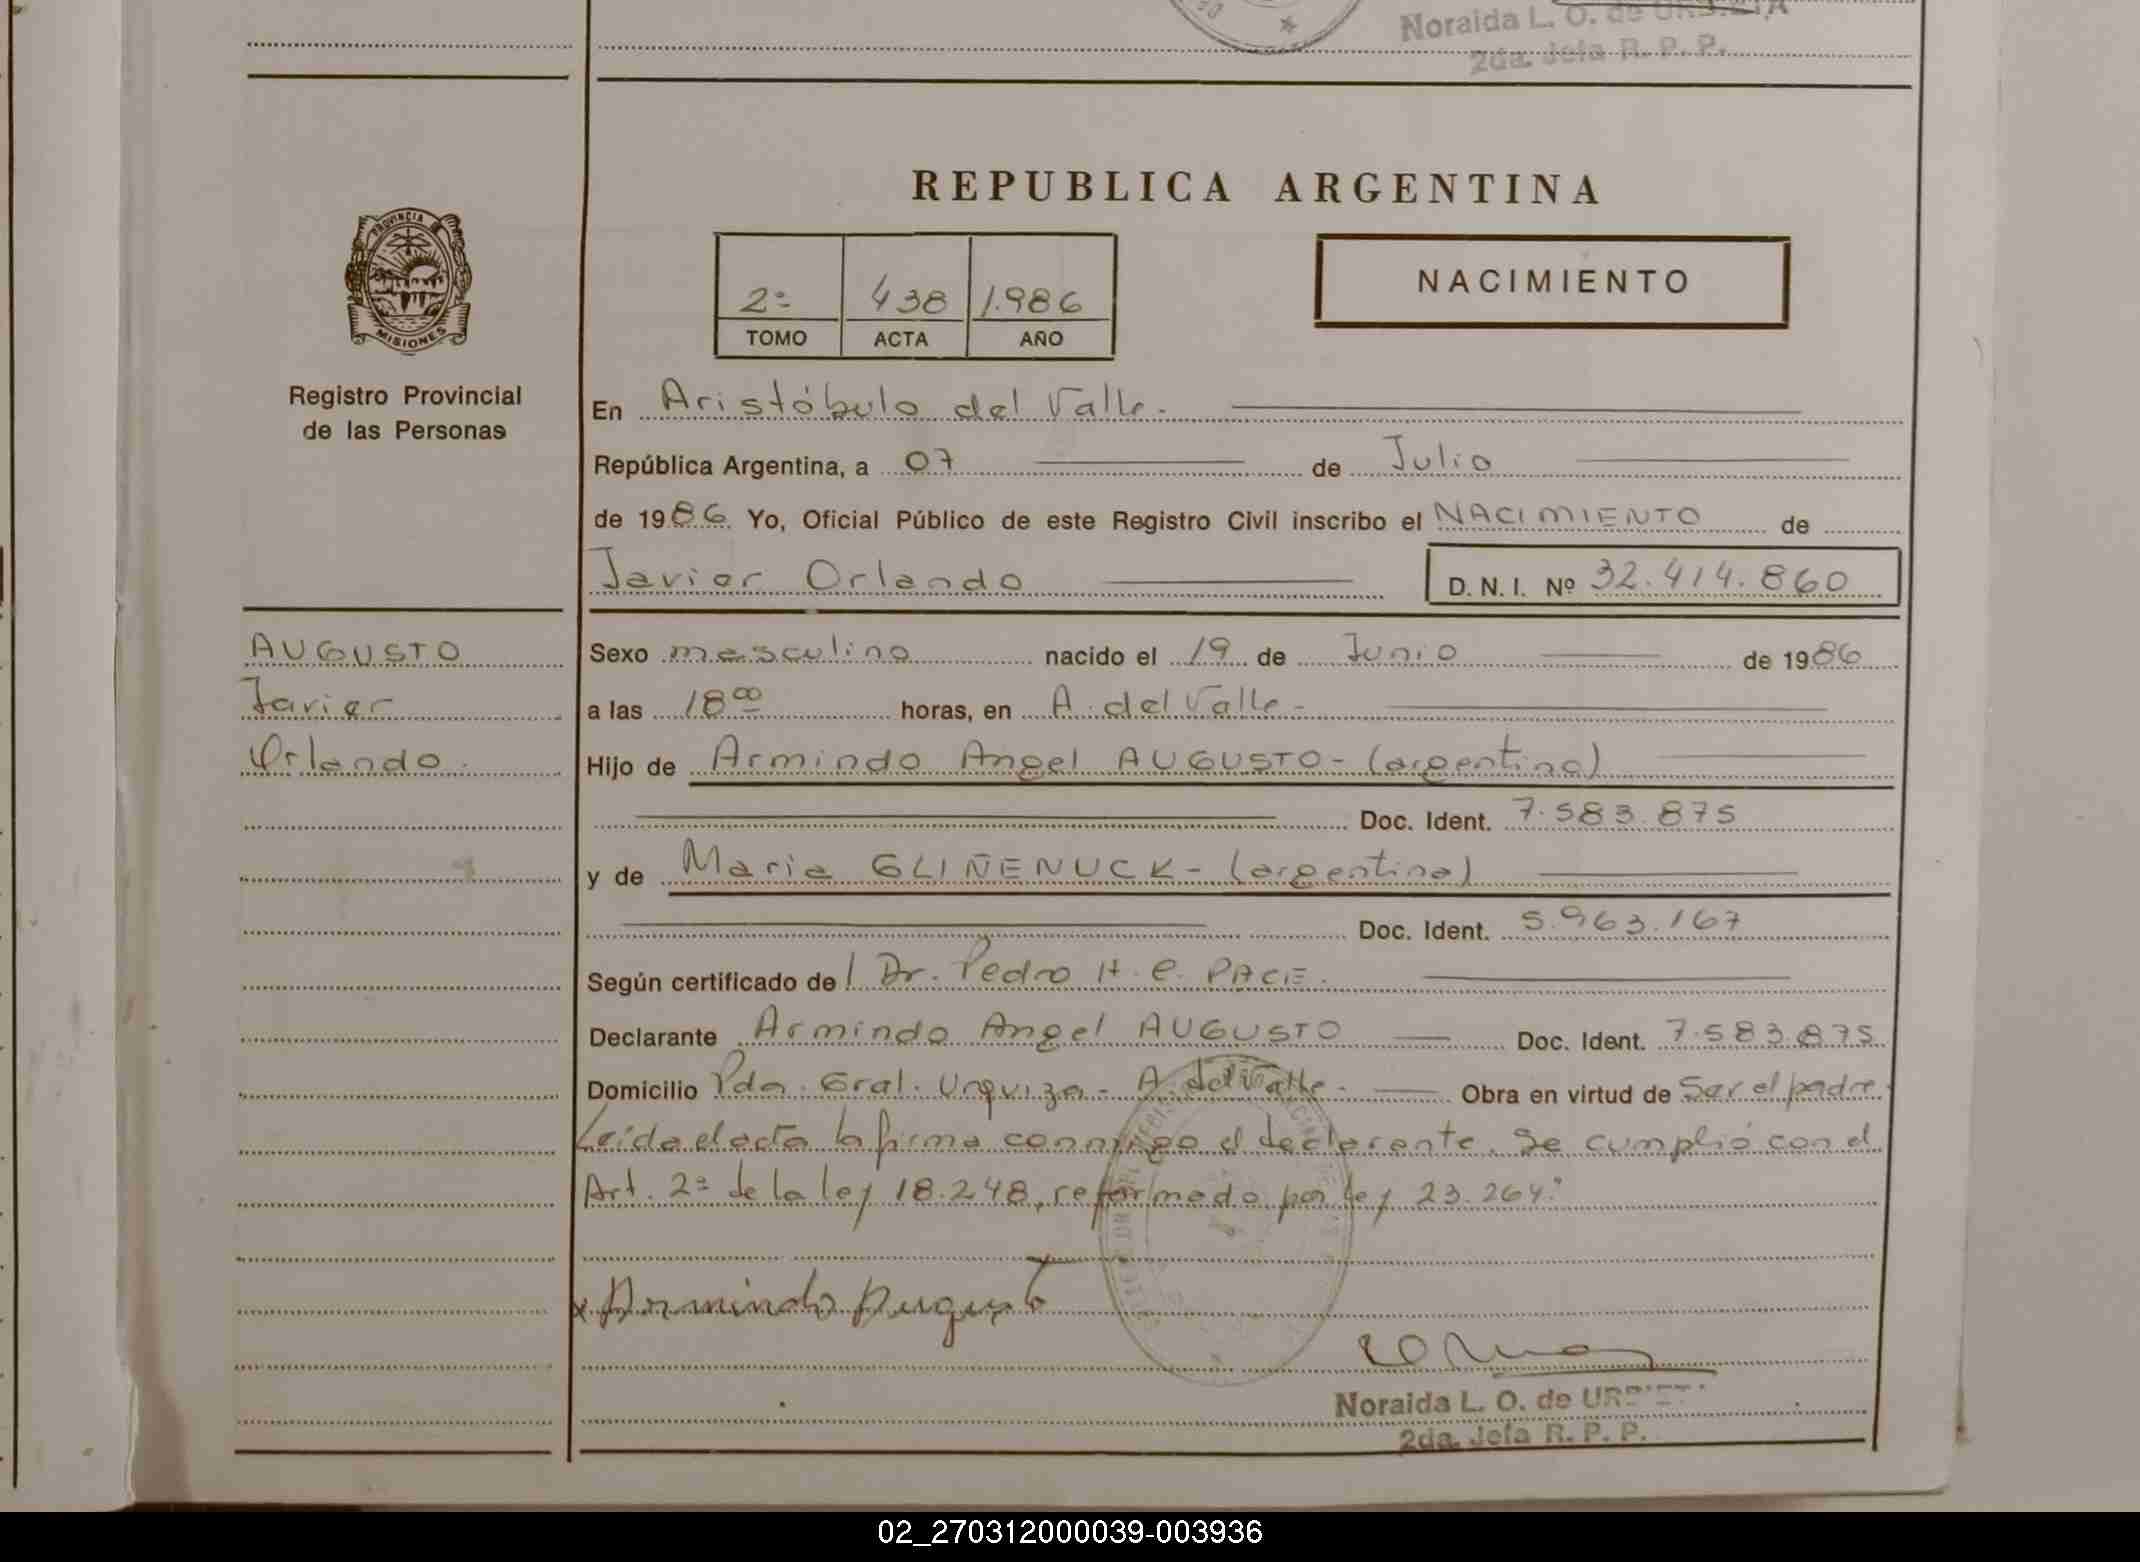 Noraida L. O. de
2da. Jefa R. P. P.
REPUBLICA ARGENTINA
PROVINCIA
MISIONES
2º 438 1.986
TOMO ACTA AÑO
NACIMIENTO
Registro Provincial
de las Personas
En Aristóbulo del Valle.-
República Argentina, a 07 de Julio
de 1986. Yo, Oficial Público de este Registro Civil inscribo el NACIMIENTO de
Javier Orlando D. N. I. Nº 32.414.860
AUGUSTO
Javier
Orlando.
Sexo masculino nacido el 19 de Junio de 1986
a las 18 00 horas, en A. del Valle.-
Hijo de Armindo Angel AUGUSTO- (argentino)
Doc. Ident. 7.583.875
y de Maria GLIÑENUCK- (argentina)
Doc. Ident. 5.963.167
Según certificado de Dr. Pedro H. e. PACE.
Declarante Armindo Angel AUGUSTO Doc. Ident. 7.583.875
Domicilio Pdo. Gral. Urquiza- A. del Valle.- Obra en virtud de Ser el padre.
Leída el acta la firma conmigo el declarante. Se cumplió con el
Art. 2º de la ley 18.248, reformado por ley 23.264."
x Armindo Augusto
Noraida L. O. de
2da. Jefa R. P. P.
02_270312000039-003936